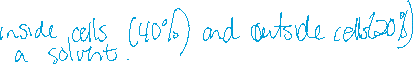 inside cells (40%) and outside cells (20%)
a solvent.